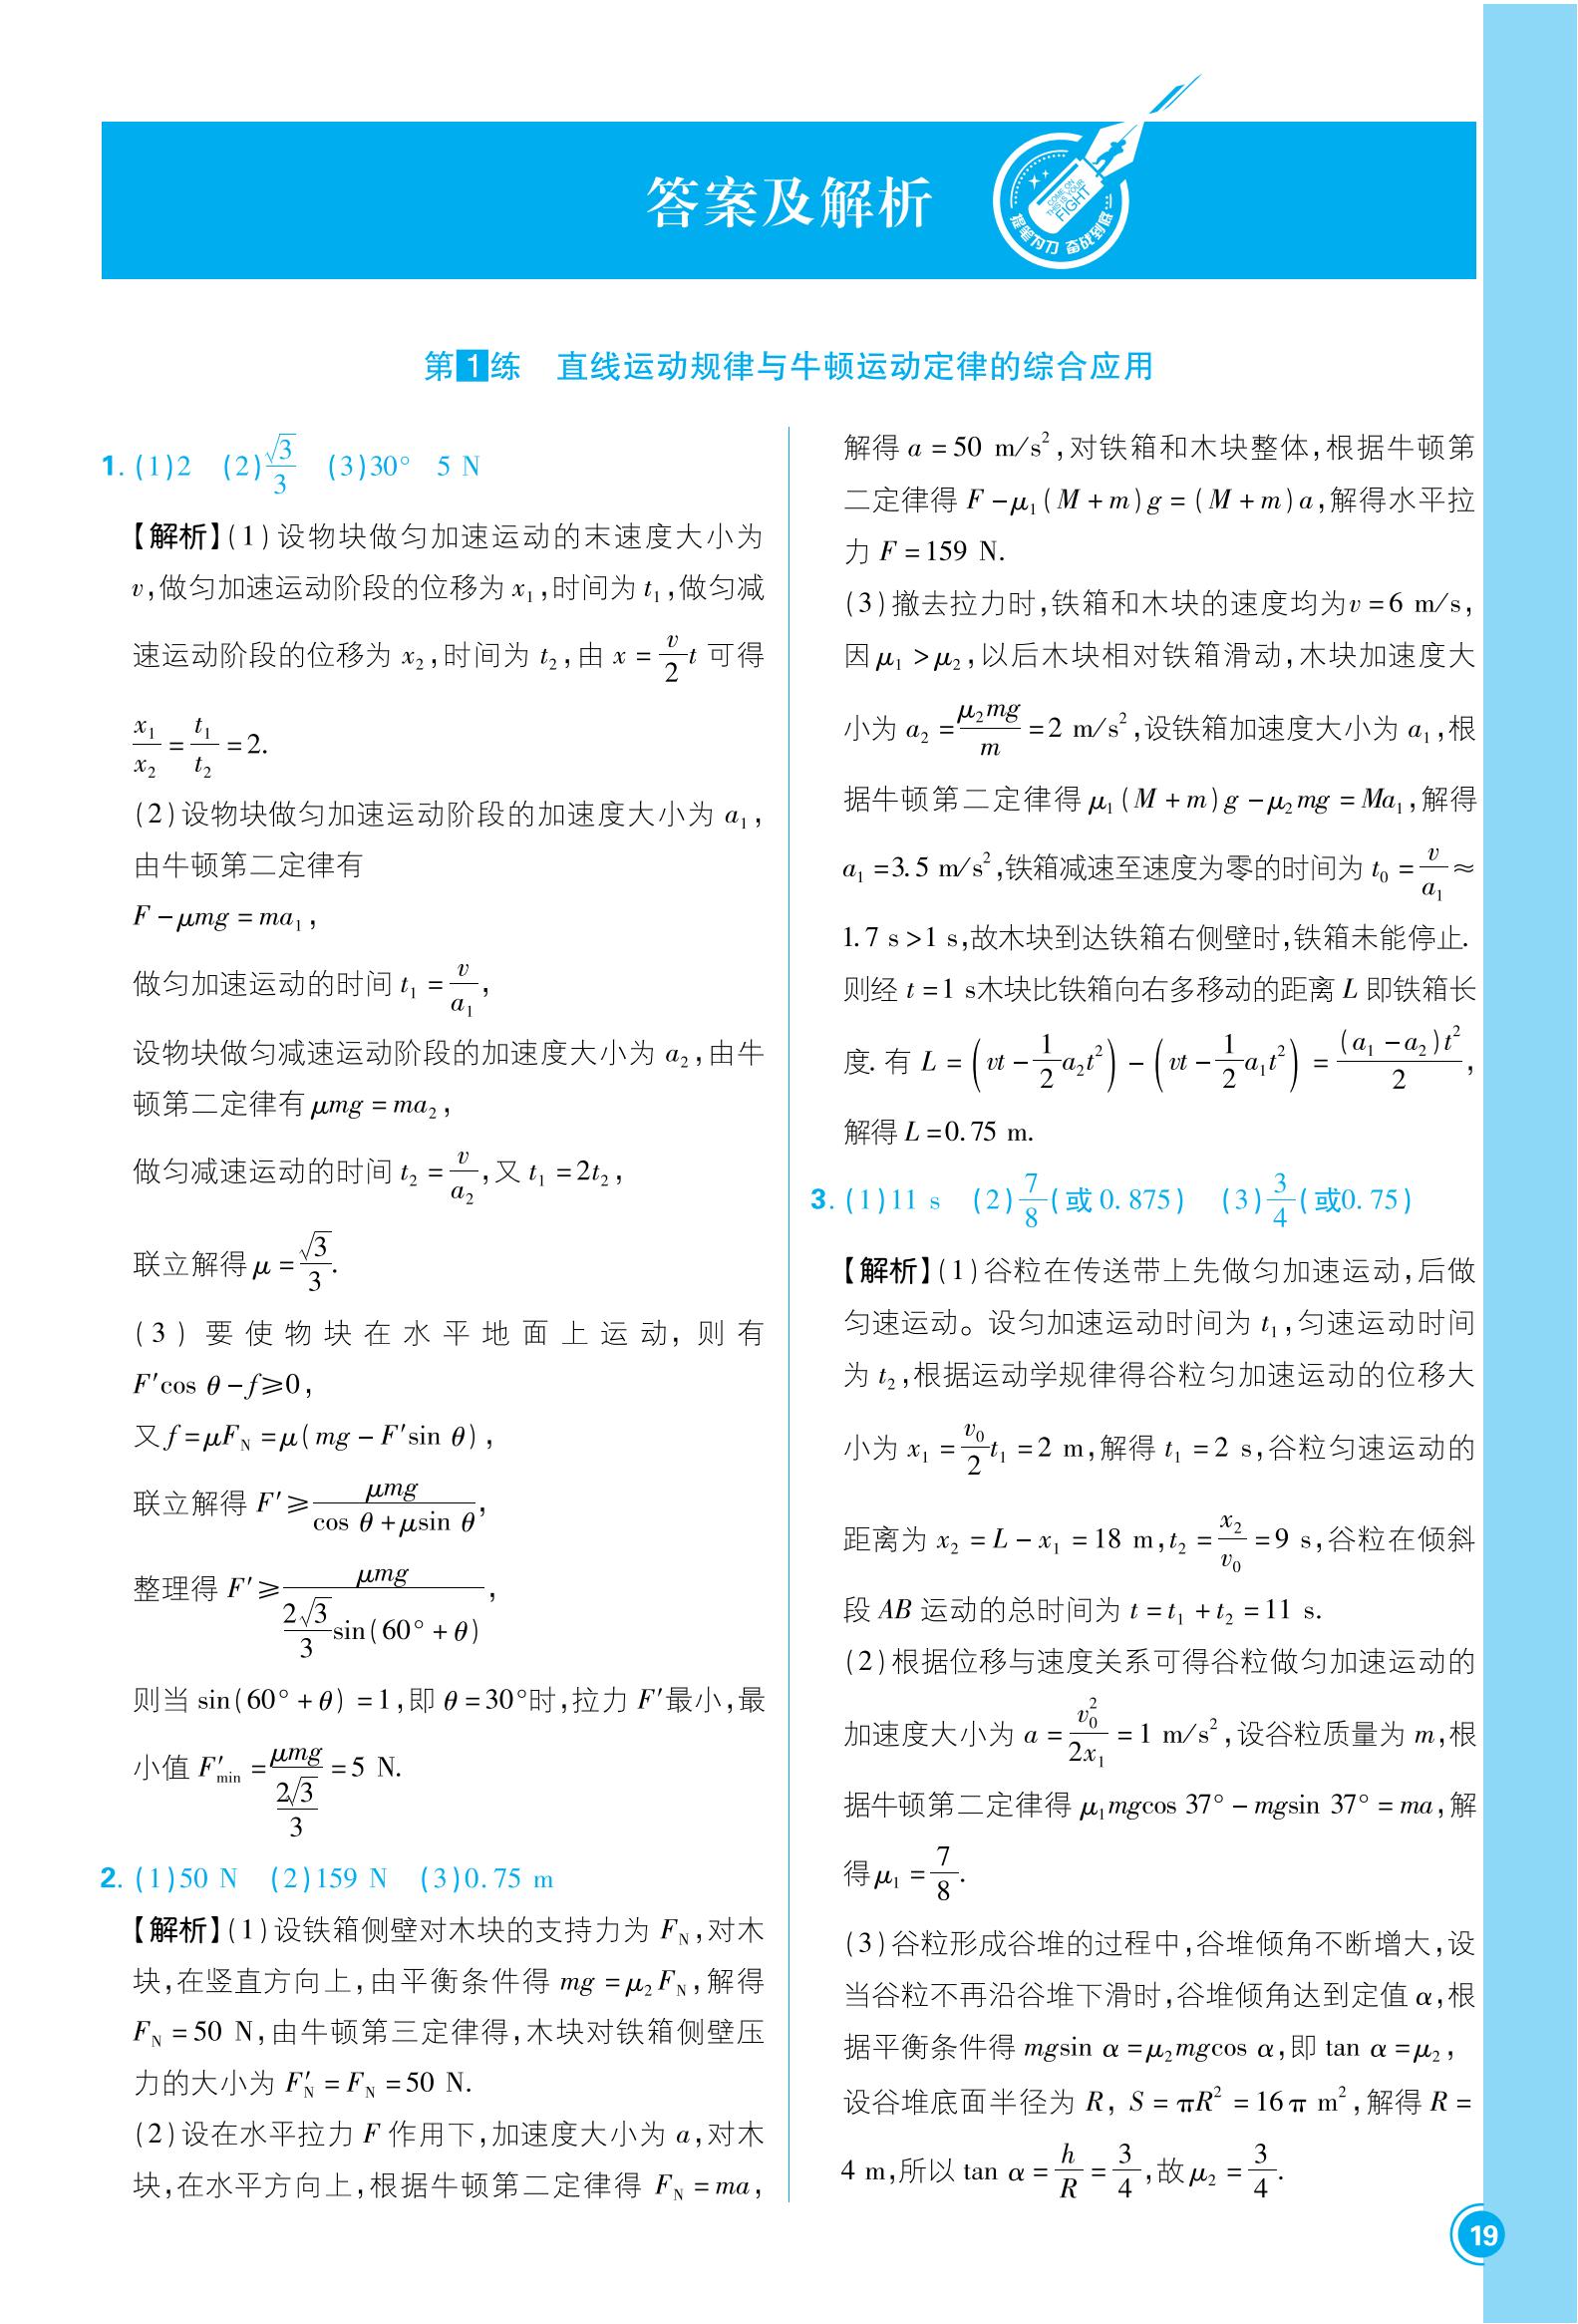 答案及解析
COME ON
THIS IS YOUR
FIGHT
提笔为刀 奋战到底
第1练 直线运动规律与牛顿运动定律的综合应用
1. (1)2 (2)√3/3 (3)30° 5 N
【解析】(1)设物块做匀加速运动的末速度大小为
v,做匀加速运动阶段的位移为 x₁,时间为 t₁,做匀减
速运动阶段的位移为 x₂,时间为 t₂,由 x = v/2 t 可得
x₁/x₂ = t₁/t₂ = 2.
(2)设物块做匀加速运动阶段的加速度大小为 a₁,
由牛顿第二定律有
F − μmg = ma₁,
做匀加速运动的时间 t₁ = v/a₁,
设物块做匀减速运动阶段的加速度大小为 a₂,由牛
顿第二定律有 μmg = ma₂,
做匀减速运动的时间 t₂ = v/a₂,又 t₁ = 2t₂,
联立解得 μ = √3/3.
(3)要使物块在水平地面上运动,则有
F′cos θ − f ≥ 0,
又 f = μF_N = μ(mg − F′sin θ),
联立解得 F′ ≥ μmg/(cos θ + μsin θ),
整理得 F′ ≥ μmg/((2√3/3)sin(60° + θ)),
则当 sin(60° + θ) = 1,即 θ = 30°时,拉力 F′最小,最
小值 F′_min = μmg/(2√3/3) = 5 N.
2. (1)50 N (2)159 N (3)0.75 m
【解析】(1)设铁箱侧壁对木块的支持力为 F_N,对木
块,在竖直方向上,由平衡条件得 mg = μ₂F_N,解得
F_N = 50 N,由牛顿第三定律得,木块对铁箱侧壁压
力的大小为 F′_N = F_N = 50 N.
(2)设在水平拉力 F 作用下,加速度大小为 a,对木
块,在水平方向上,根据牛顿第二定律得 F_N = ma,
解得 a = 50 m/s²,对铁箱和木块整体,根据牛顿第
二定律得 F − μ₁(M + m)g = (M + m)a,解得水平拉
力 F = 159 N.
(3)撤去拉力时,铁箱和木块的速度均为v = 6 m/s,
因 μ₁ > μ₂,以后木块相对铁箱滑动,木块加速度大
小为 a₂ = μ₂mg/m = 2 m/s²,设铁箱加速度大小为 a₁,根
据牛顿第二定律得 μ₁(M + m)g − μ₂mg = Ma₁,解得
a₁ = 3.5 m/s²,铁箱减速至速度为零的时间为 t₀ = v/a₁ ≈
1.7 s > 1 s,故木块到达铁箱右侧壁时,铁箱未能停止.
则经 t = 1 s木块比铁箱向右多移动的距离 L 即铁箱长
度. 有 L = (vt − 1/2 a₂t²) − (vt − 1/2 a₁t²) = (a₁ − a₂)t²/2,
解得 L = 0.75 m.
3. (1)11 s (2)7/8(或 0.875) (3)3/4(或0.75)
【解析】(1)谷粒在传送带上先做匀加速运动,后做
匀速运动。设匀加速运动时间为 t₁,匀速运动时间
为 t₂,根据运动学规律得谷粒匀加速运动的位移大
小为 x₁ = v₀/2 t₁ = 2 m,解得 t₁ = 2 s,谷粒匀速运动的
距离为 x₂ = L − x₁ = 18 m,t₂ = x₂/v₀ = 9 s,谷粒在倾斜
段 AB 运动的总时间为 t = t₁ + t₂ = 11 s.
(2)根据位移与速度关系可得谷粒做匀加速运动的
加速度大小为 a = v₀²/2x₁ = 1 m/s²,设谷粒质量为 m,根
据牛顿第二定律得 μ₁mgcos 37° − mgsin 37° = ma,解
得 μ₁ = 7/8.
(3)谷粒形成谷堆的过程中,谷堆倾角不断增大,设
当谷粒不再沿谷堆下滑时,谷堆倾角达到定值 α,根
据平衡条件得 mgsin α = μ₂mgcos α,即 tan α = μ₂,
设谷堆底面半径为 R, S = πR² = 16π m²,解得 R =
4 m,所以 tan α = h/R = 3/4,故 μ₂ = 3/4.
19